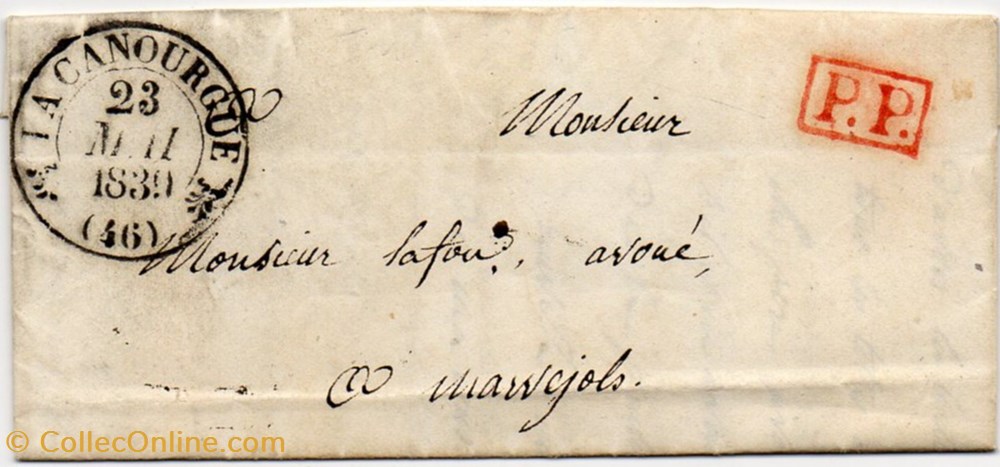 LA CANOURGUE
23
MAI
1839
(46)
P.P.
Monsieur
Monsieur lafon, avoué,
a marvejols.
© CollecOnline.com